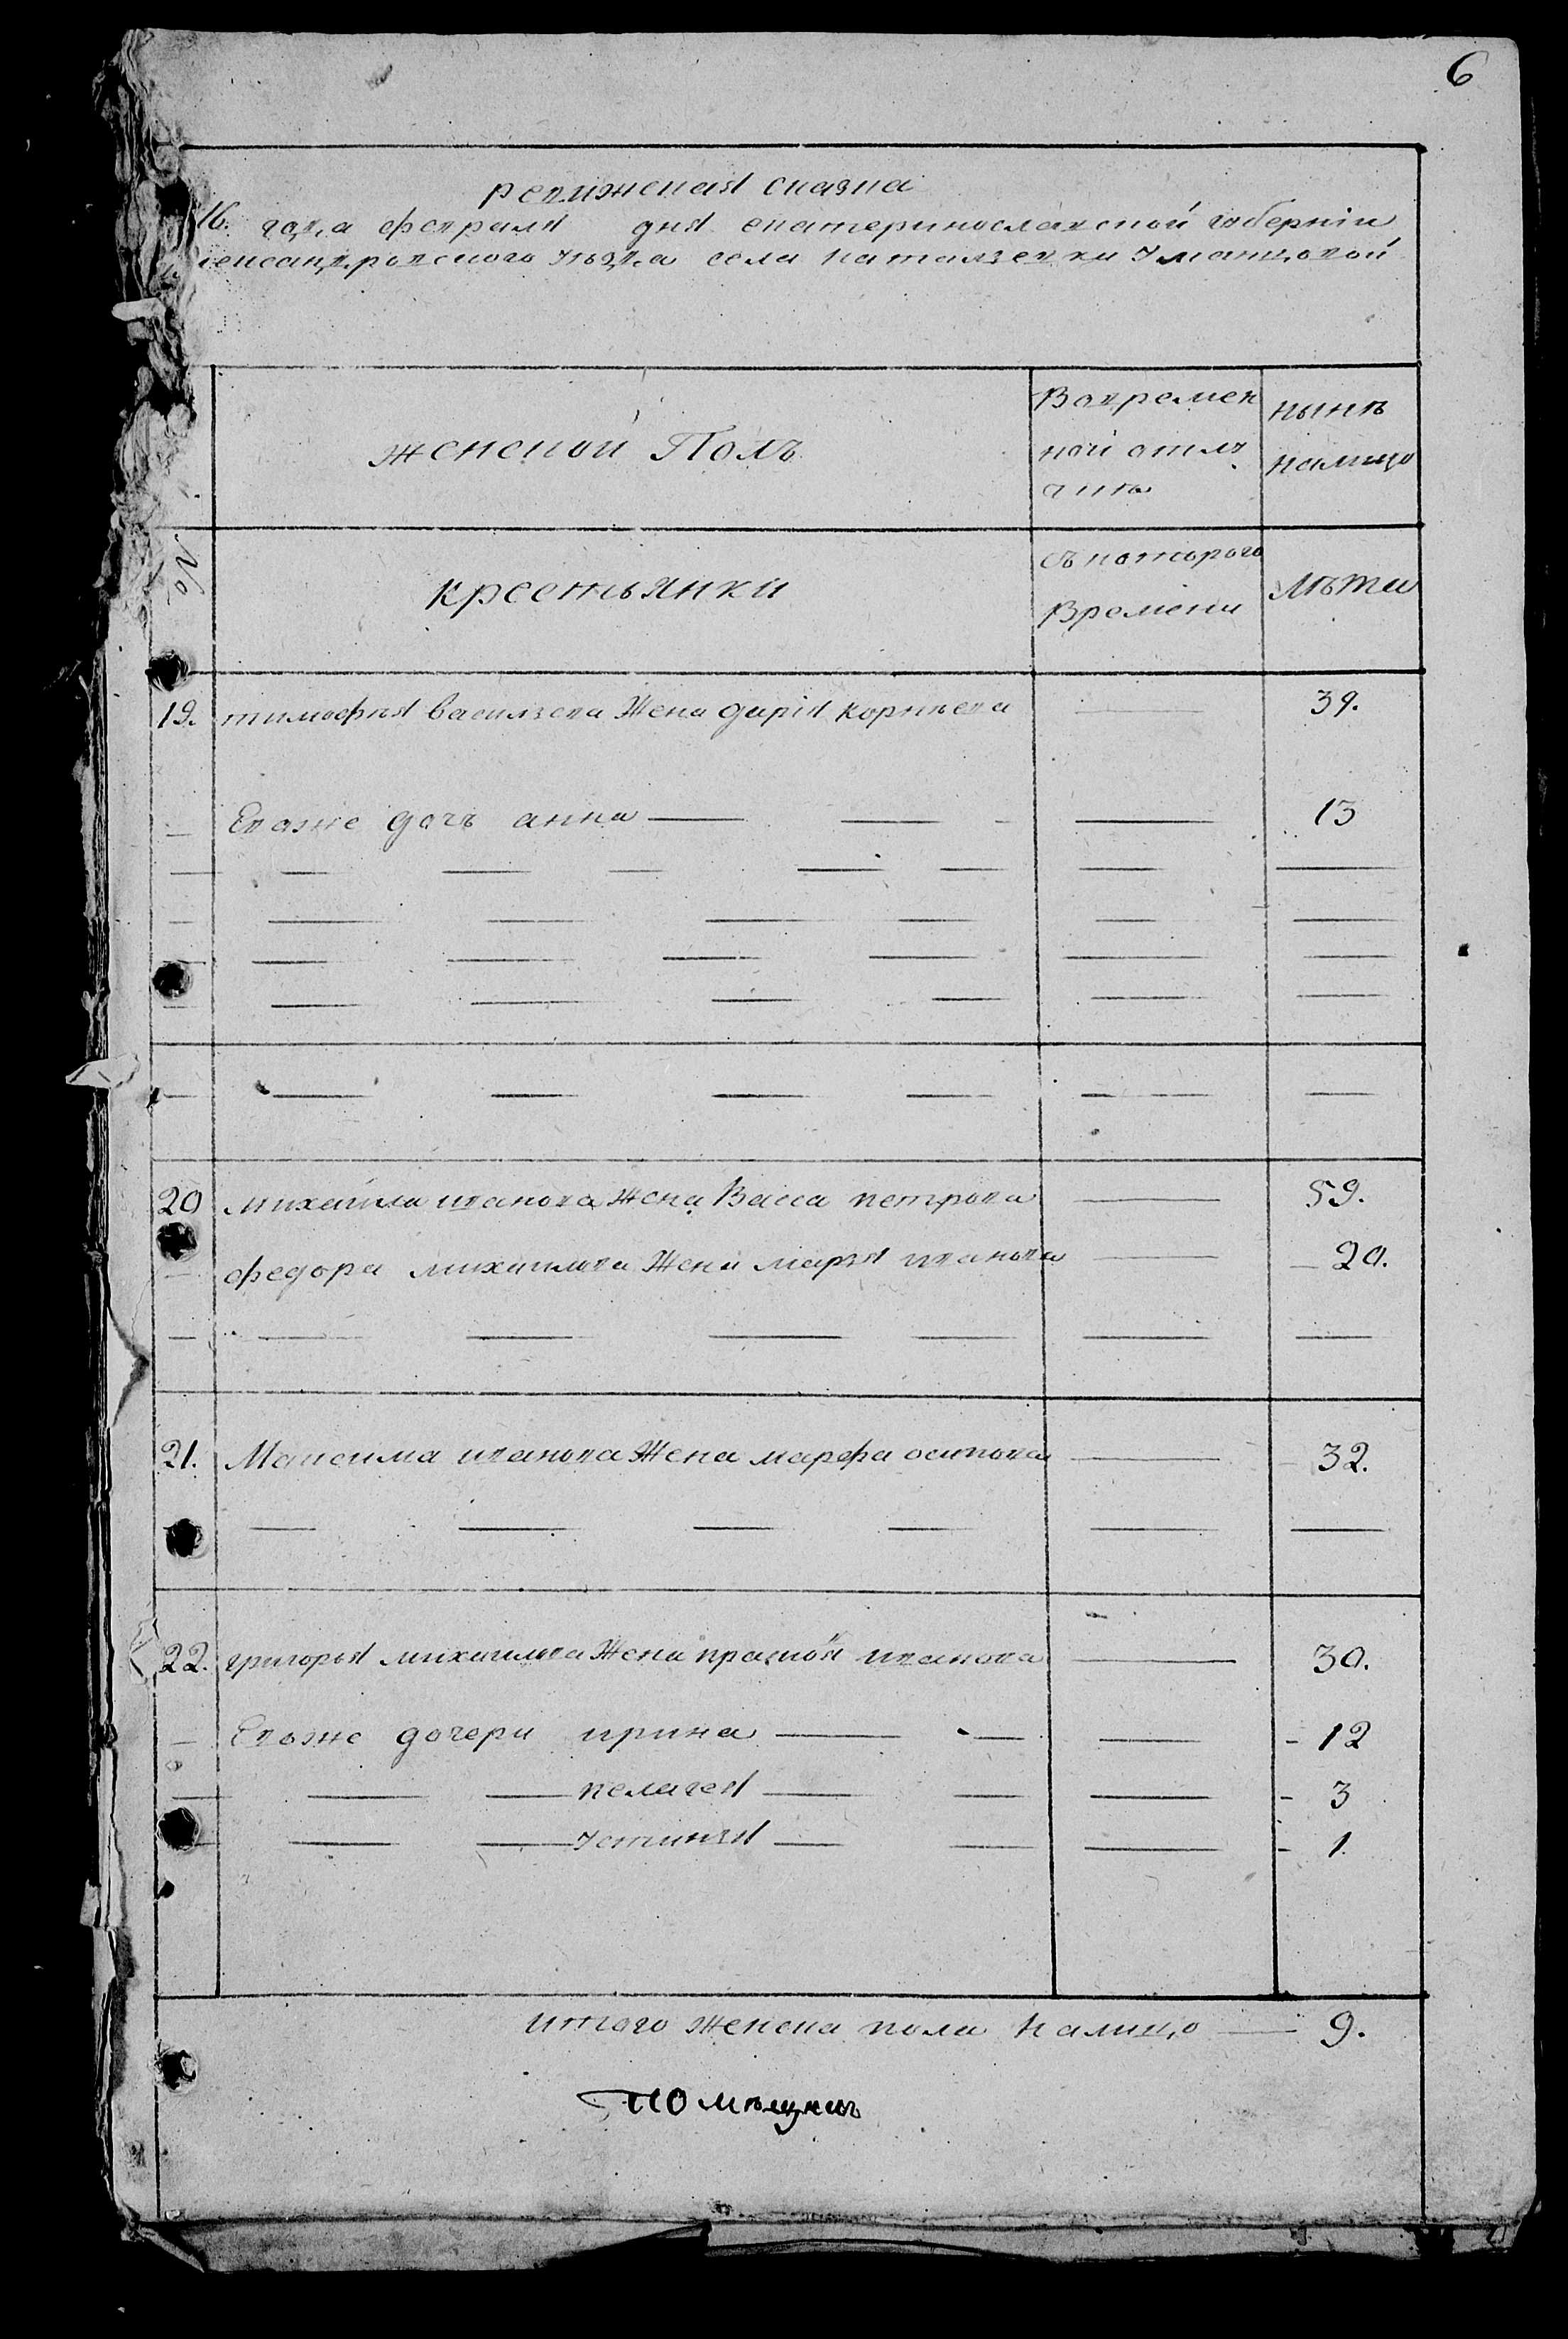 6
ревижская сказка
16. года февраля дня екатеринославской губернии
лександровского уъзда села наталзевки Уманцовой
женской Полъ
Вовремен
ной отлу
чикъ
нынъ
налицо
No
крестьянки
съ которого
Времени
Лъта
19. тимофъя василзева Жена дария корнъева — 39.
— Евоже дочъ анна — — - — 13
20 михаила иванова Жена Васса петрова — 59.
— федора михаилова Жена марзя иванова — 20.
21. Максима иванова Жена марфа осипова — 32.
22. григорья михаилова Жена праскозя иванова — 30.
— Евоже дочери ирина — — — - 12
— — — пелагея — — — - 3
— — — Устинзя — — — - 1.
итого женска пола налицо — 9.
Помъщикъ